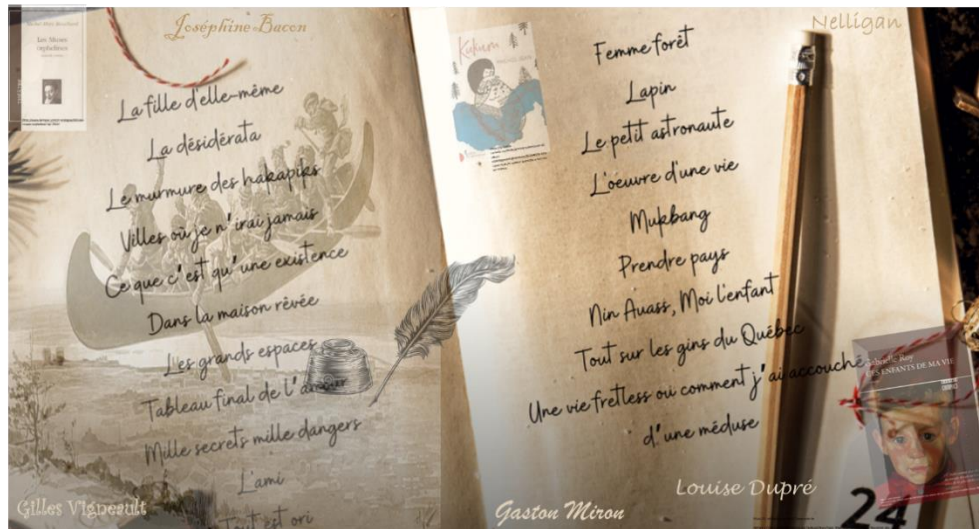 Joséphine Bacon
Les Muses orphelines
La fille d'elle-même
La désidérata
Le murmure des hakapiks
Villes où je n'irai jamais
Ce que c'est qu'une existence
Dans la maison rêvée
Les grands espaces
Tableau final de l'amour
Mille secrets mille dangers
L'ami
Tout est ori
Gilles Vigneault
Nelligan
Kukum
Femme forêt
Lapin
Le petit astronaute
L'oeuvre d'une vie
Mukbang
Prendre pays
Nin Auass, Moi l'enfant
Tout sur les gins du Québec
Une vie fretless ou comment j'ai accouché
d'une méduse
Gabrielle Roy
CES ENFANTS DE MA VIE
Louise Dupré
Gaston Miron
24